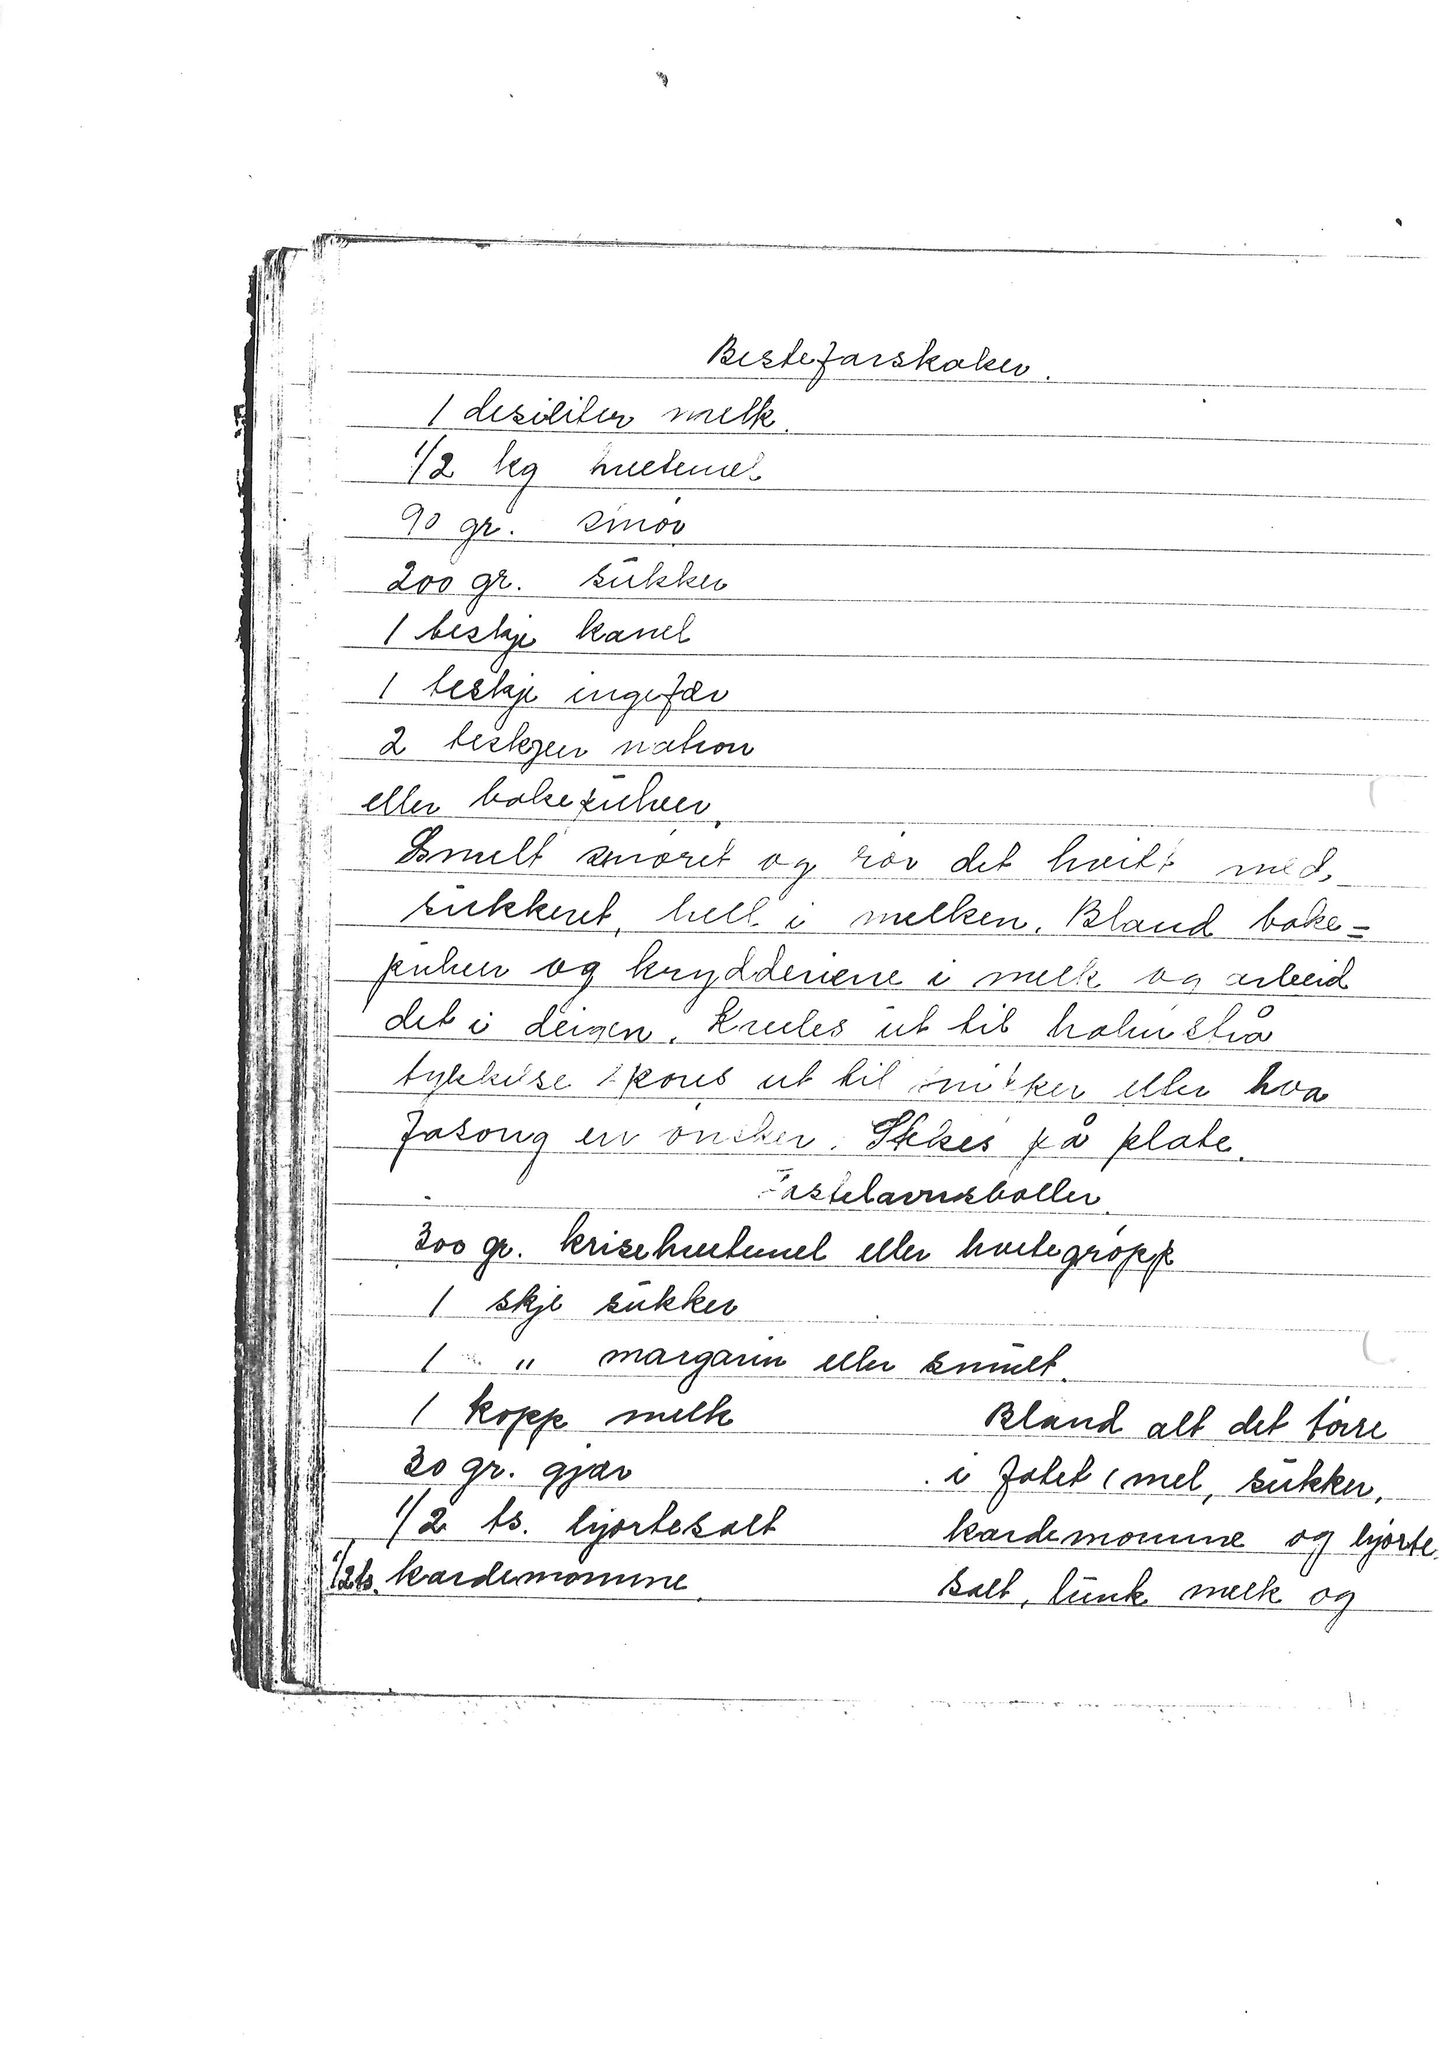 Bestefarskaker.
1 desiliter melk.
1/2 kg hvetemel
90 gr. smør
200 gr. sukker
1 teskje kanel
1 teskje ingefær
2 teskjeer natron
eller bakepulver.
Smelt smøret og rør det hvitt med
sukkeret, hell i melken. Bland bake=
pulver og krydderiene i melk og arbeid
det i deigen. ut til halm strå
tykkelse ut til snitter eller hva
fasong en ønsker. Stekes på plate.
Fastelavnsboller.
300 gr. krisehvetemel eller hvetegrøpp
1 skje sukker
1 " margarin eller smult.
1 kopp melk
30 gr. gjær
1/2 ts. hjortesalt
1/2 ts. kardemomme.
Bland alt det tørre
i fatet (mel, sukker,
kardemomme og hjorte
salt, lunk melk og